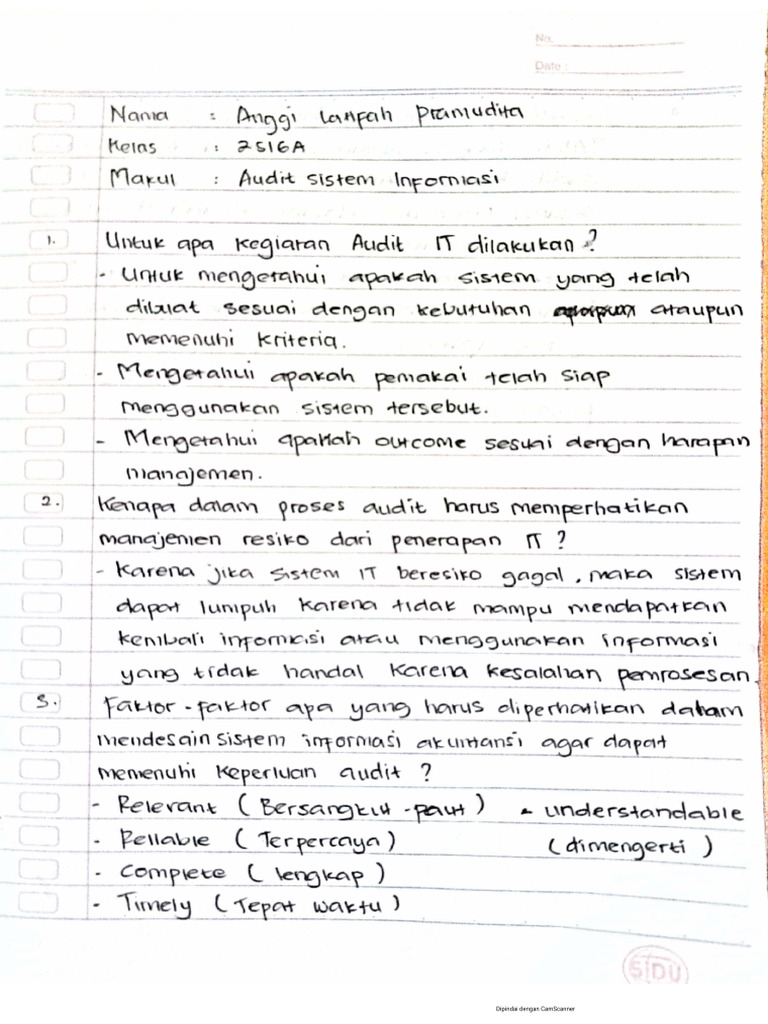 No.
Date :
Nama : Anggi Larifah Pramudita
Kelas : 2SI6A
Makul : Audit sistem Informasi
1. Untuk apa kegiatan Audit IT dilakukan ?
- Untuk mengetahui apakah sistem yang telah
dibuat sesuai dengan kebutuhan ataupun
memenuhi kriteria.
- Mengetahui apakah pemakai telah siap
menggunakan sistem tersebut.
- Mengetahui apakah outcome sesuai dengan harapan
manajemen.
2. Kenapa dalam proses audit harus memperhatikan
manajemen resiko dari penerapan IT ?
- Karena jika sistem IT beresiko gagal, maka sistem
dapat lumpuh karena tidak mampu mendapatkan
kembali informasi atau menggunakan informasi
yang tidak handal karena kesalahan pemrosesan.
3. Faktor-faktor apa yang harus diperhatikan dalam
mendesain sistem informasi akuntansi agar dapat
memenuhi keperluan audit ?
- Relevant ( Bersangkut-paut ) - understandable
- Reliable ( Terpercaya ) ( dimengerti )
- Complete ( lengkap )
- Timely ( Tepat waktu )
SIDU
Dipindai dengan CamScanner